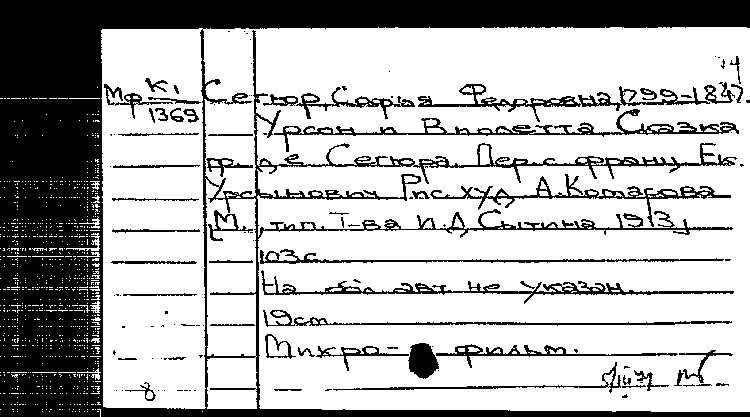 14
Мф К1 Сегюр, София Федоровна, 1799-1847.
1369 Урсон и Виолетта. Сказка
гр. де Сегюра. Пер. с франц. Ек.
Урсынович Рис. худ. А. Комарова
[М., тип. Т-ва И.Д. Сытина, 1913]
103 с.
На обл. авт. не указан.
19 cm.
Микро- фильм.
8